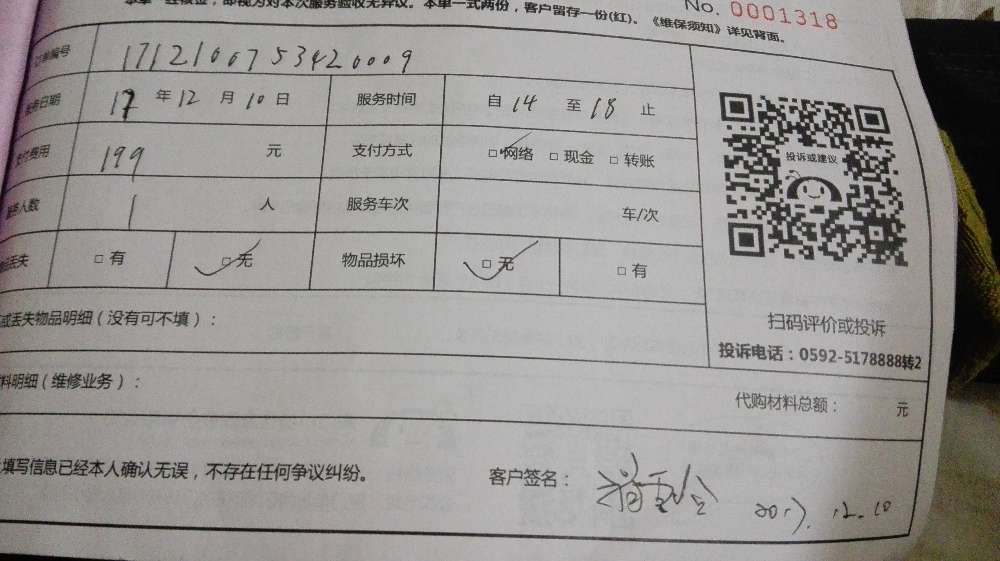 本单一经核签，即视为对本次服务验收无异议。本单一式两份，客户留存一份(红)。《维保须知》详见背面。
No. 0001318
订单编号 1712100753420009
服务日期 17 年 12 月 10 日 服务时间 自 14 至 18 止
支付费用 199 元 支付方式 □网络 □现金 □转账
服务人数 1 人 服务车次 车/次
丢失 □有 □无 物品损坏 □无 □有
投诉或建议
扫码评价或投诉
投诉电话：0592-5178888转2
或丢失物品明细（没有可不填）：
料明细（维修业务）：
代购材料总额： 元
填写信息已经本人确认无误，不存在任何争议纠纷。
客户签名： 2017.12.10